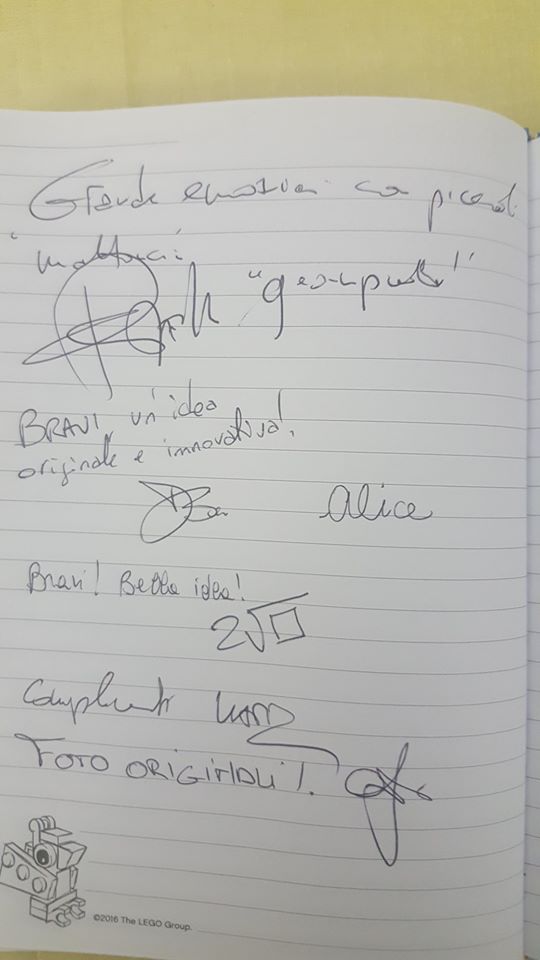 Grande emozioni con piccoli
"mattoncini"
BRAVI, un'idea
originale e innovativa!
Alice
Bravi! Bella idea!
2√□
Complimenti
FOTO ORIGINALI!
©2016 The LEGO Group.